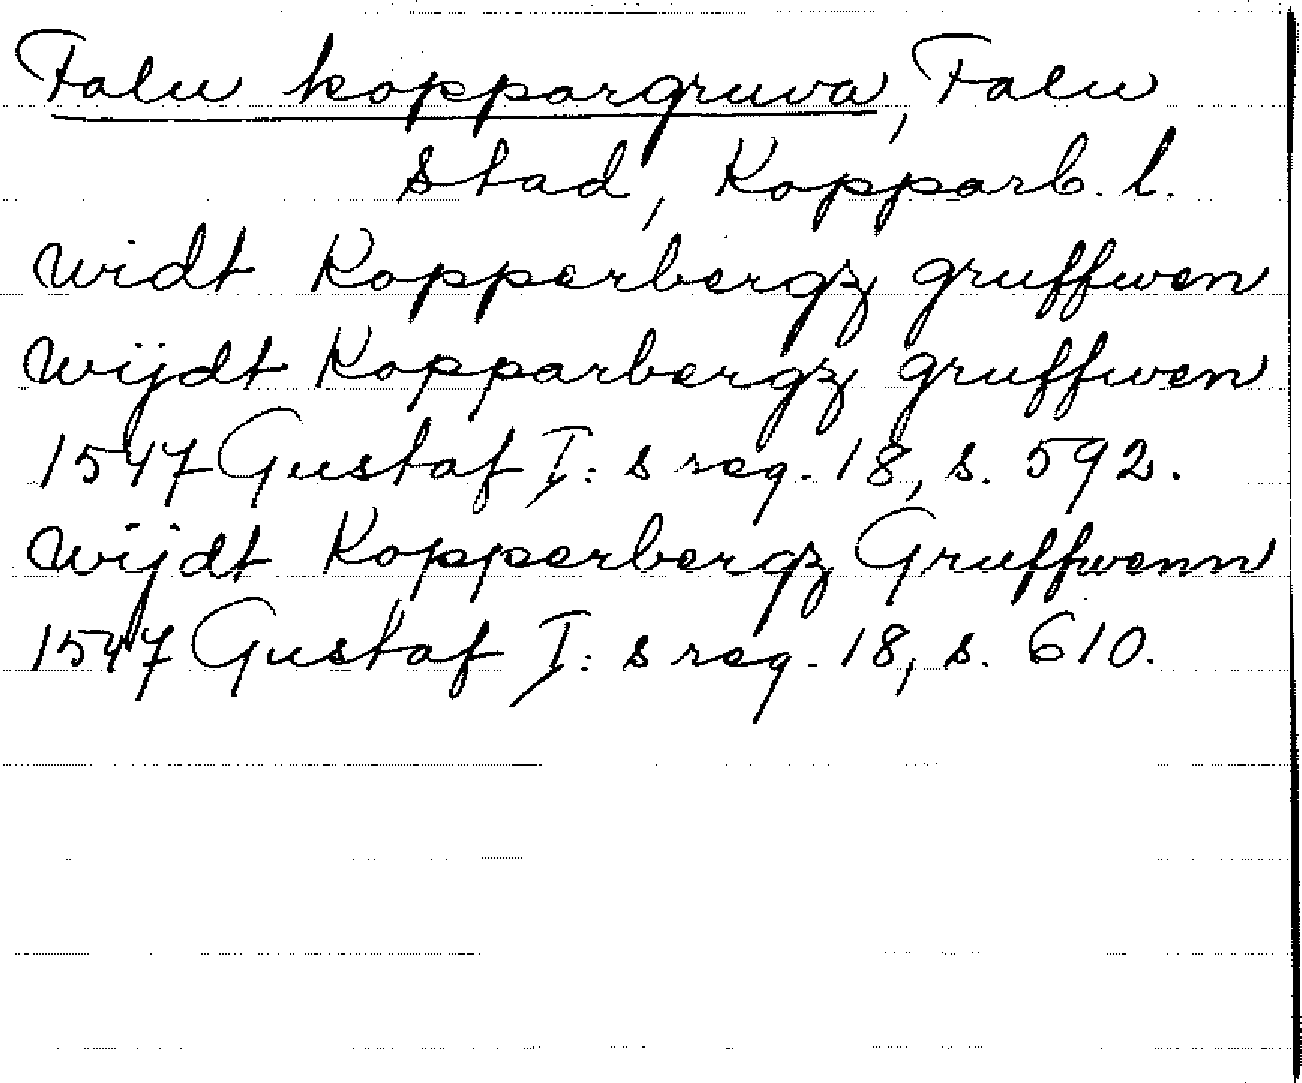 Falu koppargruva, Falu
stad, Kopparb. l.
widt Kopperbergz gruffwen
wijdt Kopparbergz gruffwen
1547 Gustaf I:s reg. 18, s. 592.
wijdt Kopperbergz Gruffwenn
1547 Gustaf I:s reg. 18, s. 610.